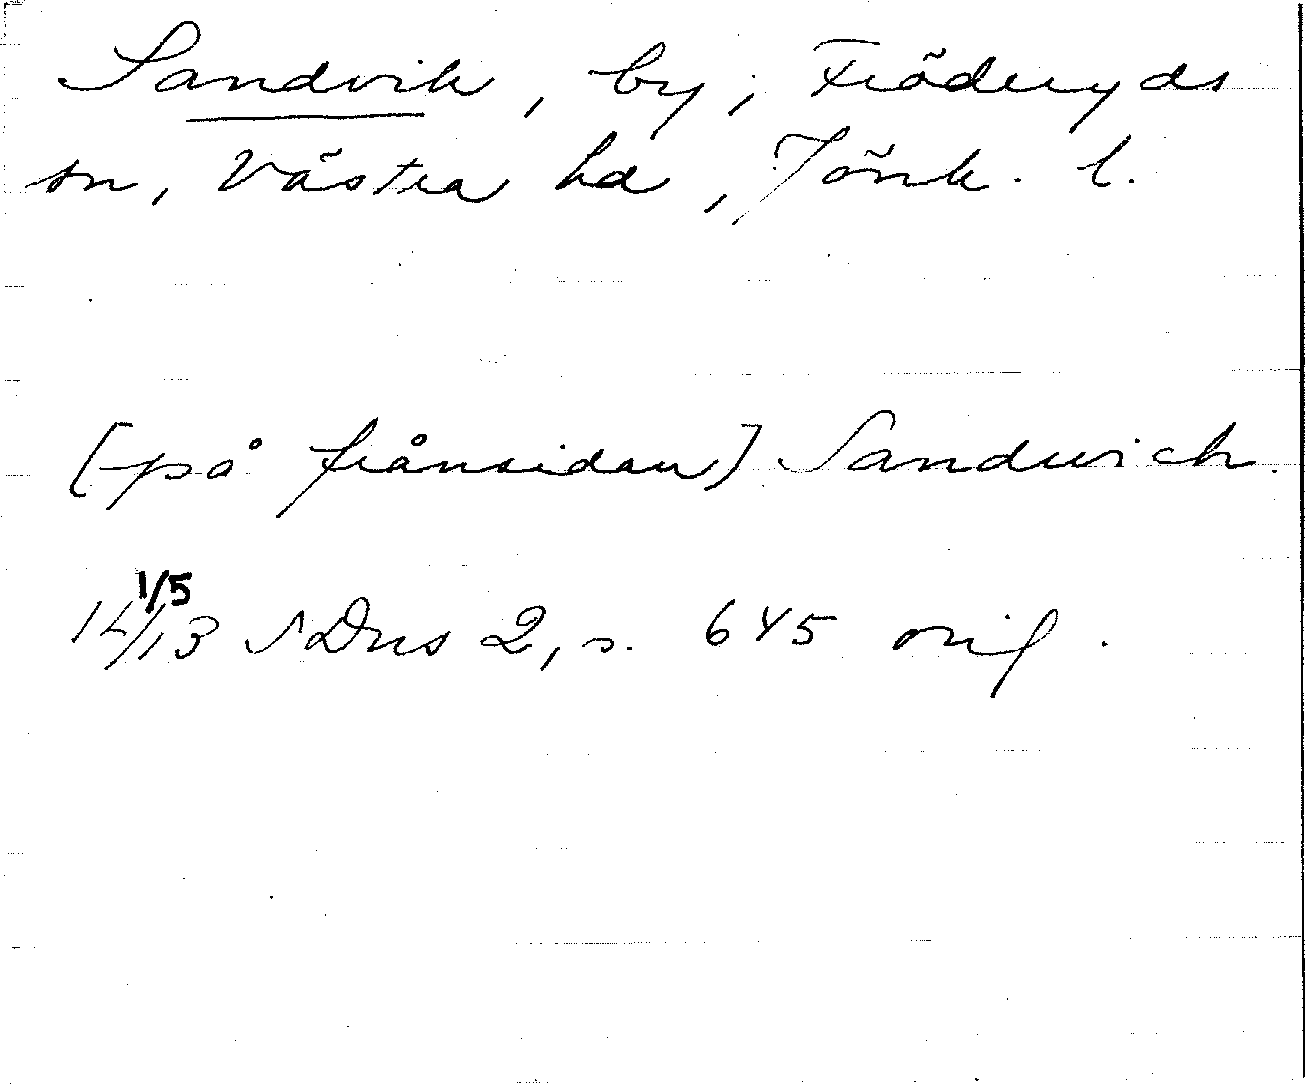 Sandvik, by, Fröderyds
sn, Västra hd, Jönk. l.
[på frånsidan] Sandwich.
14 1/5 13 SDns 2, s. 645 orig.